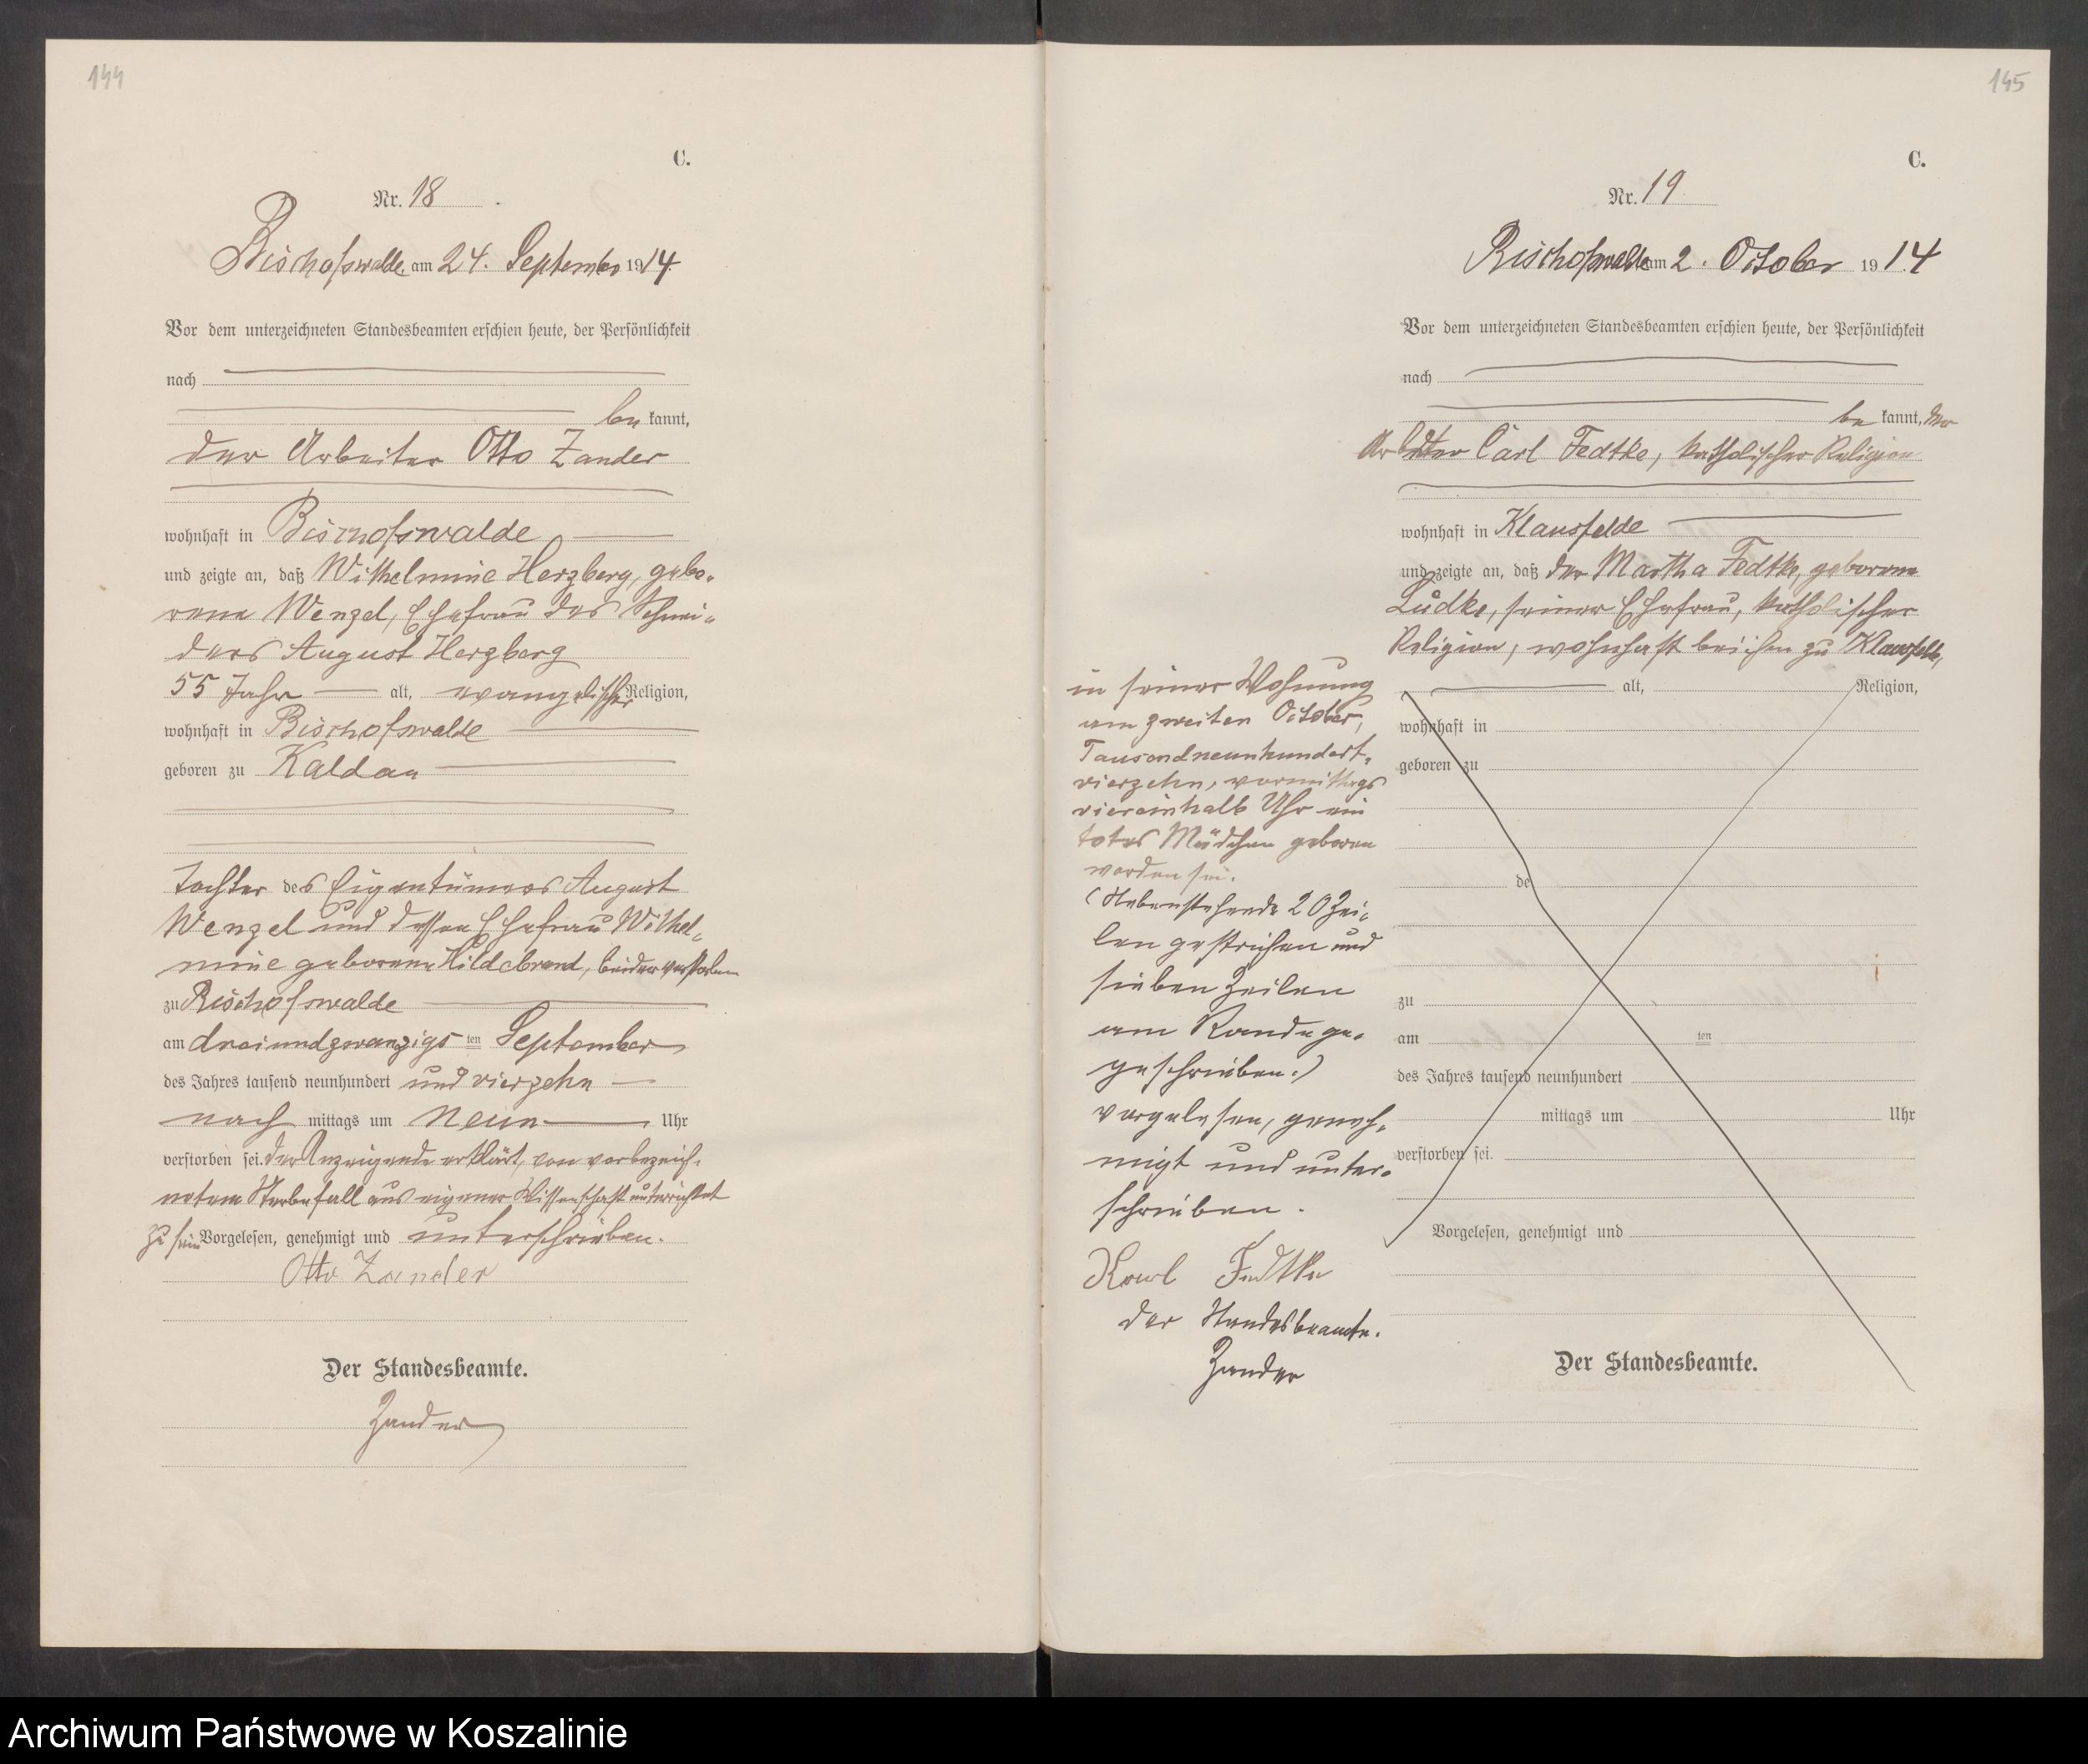 144
C.
Nr. 18
Bischofswalde am 24. September 1914.
Vor dem unterzeichneten Standesbeamten erschien heute, der Persönlichkeit
nach
be kannt,
der Arbeiter Otto Zander
wohnhaft in Bischofswalde
und zeigte an, daß Wilhelmine Herzberg, gebo-
rene Wenzel, Ehefrau des Schnei-
ders August Herzberg
55 Jahr alt, evangelischer Religion,
wohnhaft in Bischofswalde
geboren zu Kaldau
Tochter des Eigentümers August
Wenzel und dessen Ehefrau Wilhel-
mine geborene Hildebrand, beider verstorben
zu Bischofswalde
am dreiundzwanzigs ten September
des Jahres tausend neunhundert und vierzehn
nach mittags um neun Uhr
verstorben sei. Der Anzeigende erklärt, von vorbezeich-
netem Sterbefall aus eigener Wissenschaft unterrichtet
zu sein Vorgelesen, genehmigt und unterschrieben.
Otto Zander
Der Standesbeamte.
Zander
145
C.
Nr. 19
Bischofswalde am 2. October 1914
Vor dem unterzeichneten Standesbeamten erschien heute, der Persönlichkeit
nach
be kannt, der
Arbeiter Carl Fedtke, katholischer Religion
wohnhaft in Klausfelde
und zeigte an, daß der Martha Fedtke, geborene
Lüdke, seiner Ehefrau, katholischer
Religion, wohnhaft bei ihm zu Klausfelde,
in seiner Wohnung
am zweiten October,
Tausendneunhundert-
vierzehn, vormittags
viereinhalb Uhr ein
totes Mädchen geboren
worden sei.
(Nebenstehende 20 Zei-
len gestrichen und
sieben Zeilen
am Rande ge-
geschrieben.)
vorgelesen, geneh-
migt und unter-
schrieben.
Karl Fedtke
der Standesbeamte.
Zander
alt, Religion,
wohnhaft in
geboren zu
de
zu
am ten
des Jahres tausend neunhundert
mittags um Uhr
verstorben sei.
Vorgelesen, genehmigt und
Der Standesbeamte.
Archiwum Państwowe w Koszalinie